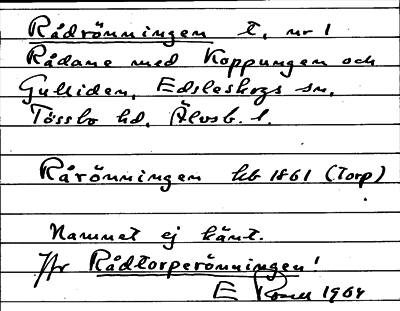 Rådrönningen t. nr 1
Rådane med Koppungen och
Gulliden, Edsleskogs sn,
Tössbo hd, Älvsb. l.
Rårönningen hb 1861 (Torp)
Namnet ej känt.
Jfr Rådtorperönningen!
E 1964